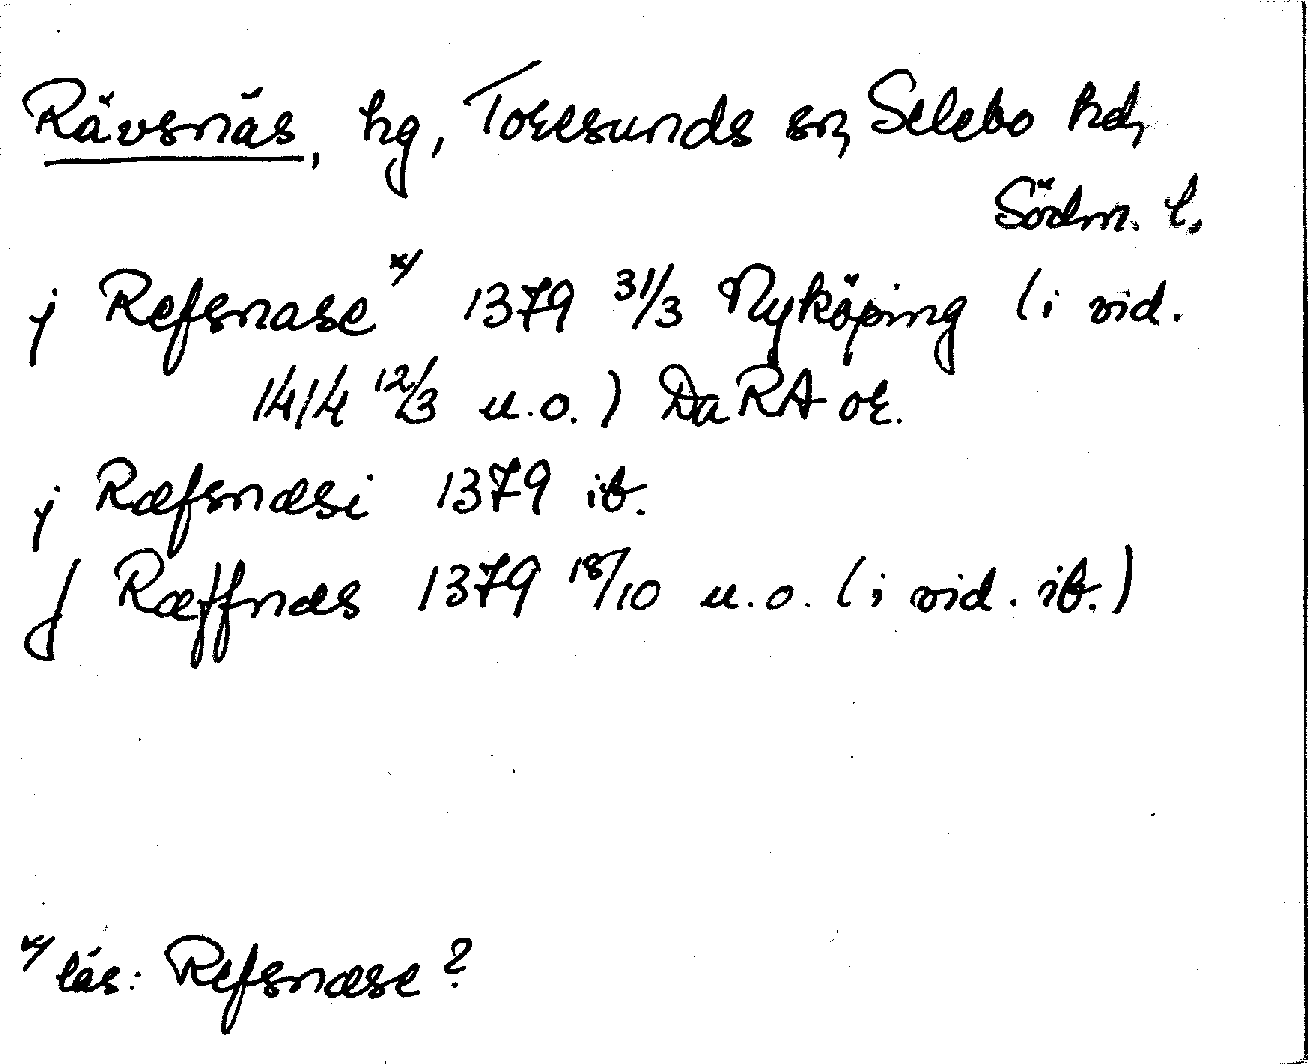 Rävsnäs, hg, Toresunds sn, Selebo hd,
Södm. l.
j Refsnase x/ 1379 31/3 Nyköping (i vid.
1414 12/3 u.o.) DaRA or.
j Ræfsnæsi 1379 ib.
J Ræffnæs 1379 18/10 u.o. (i vid. ib.)
x/ läs: Refsnæse?